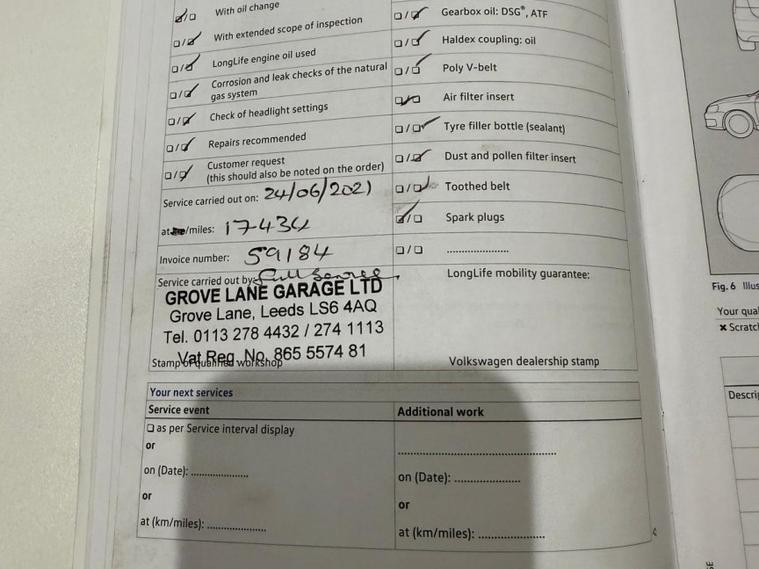 With oil change
With extended scope of inspection
LongLife engine oil used
Corrosion and leak checks of the natural
gas system
Check of headlight settings
Repairs recommended
Customer request
(this should also be noted on the order)
Service carried out on: 24/06/2021
at km/miles: 17434
Invoice number: 59184
Service carried out by: Full Service
GROVE LANE GARAGE LTD
Grove Lane, Leeds LS6 4AQ
Tel. 0113 278 4432 / 274 1113
Vat Reg. No. 865 5574 81
Stamp of qualified workshop
Gearbox oil: DSG®, ATF
Haldex coupling: oil
Poly V-belt
Air filter insert
Tyre filler bottle (sealant)
Dust and pollen filter insert
Toothed belt
Spark plugs
....................
LongLife mobility guarantee:
Volkswagen dealership stamp
Your next services
Service event
as per Service interval display
or
on (Date): ..................
or
at (km/miles): ..................
Additional work
..................................................
on (Date): ....................
or
at (km/miles): ....................
Fig. 6 Illus
Your qual
x Scratch
Descrip
SE